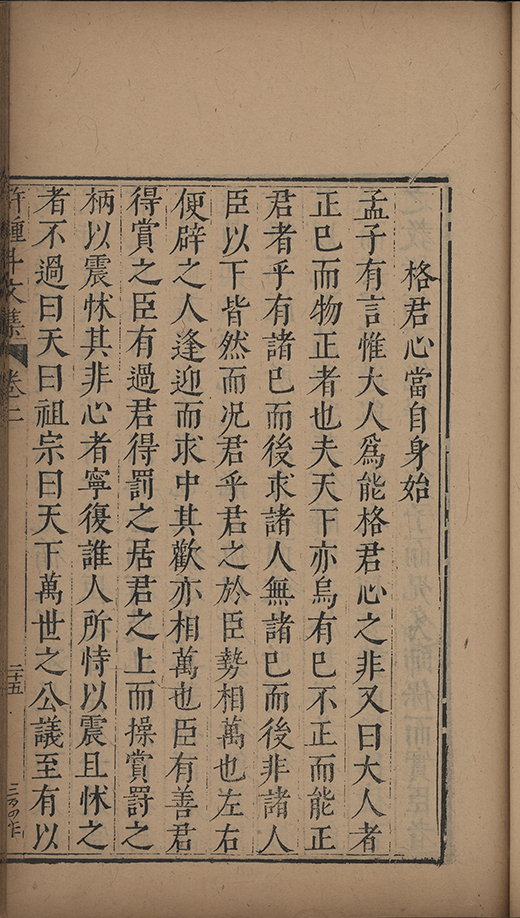 格君心當自身始
孟子有言惟大人爲能格君心之非又曰大人者
正巳而物正者也夫天下亦烏有巳不正而能正
君者乎有諸巳而後求諸人無諸巳而後非諸人
臣以下皆然而况君乎君之於臣勢相萬也左右
便辟之人逢迎而求中其歡亦相萬也臣有善君
得賞之臣有過君得罰之居君之上而操賞罸之
柄以震怵其非心者寧復誰人所恃以震且怵之
者不過曰天曰祖宗曰天下萬世之公議至有以
許鍾斗文集 卷二 二十五